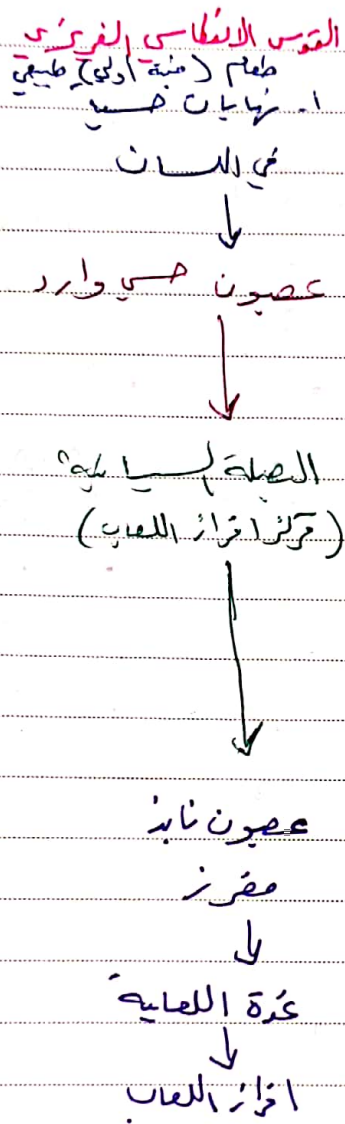 القوس الانعكاسي الغريزي
طعام (منبه أولي) طبيعي
١. نهايات حسية
في اللسان
عصبون حسي واردد
البصلة السيسائية
(مركز افراز اللعاب)
عصبون نابذ
مفرز
غدة اللعابية
افراز اللعاب